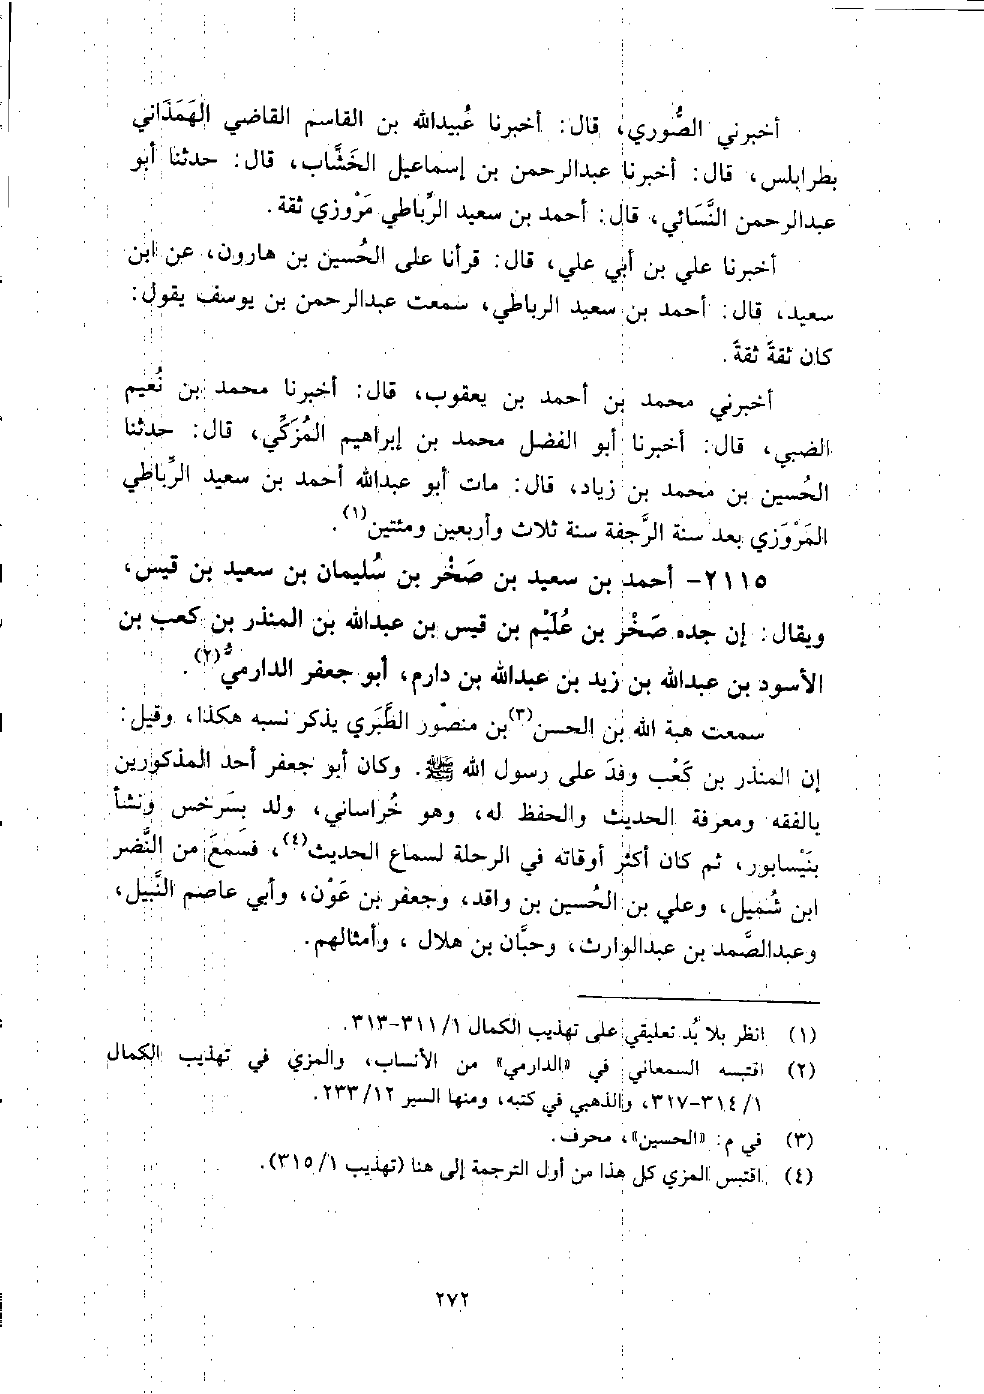 أخبرني الصُّوري، قال: أخبرنا عُبيدالله بن القاسم القاضي الهَمَذَاني
بطرابلس، قال: أخبرنا عبدالرحمن بن إسماعيل الخَشَّاب، قال: حدثنا أبو
عبدالرحمن النَّسَائي، قال: أحمد بن سعيد الرِّباطي مَرْوزي ثقة.
أخبرنا علي بن أبي علي، قال: قرأنا على الحُسين بن هارون، عن ابن
سعيد، قال: أحمد بن سعيد الرباطي، سمعت عبدالرحمن بن يوسف يقول:
كان ثقةً ثقةً.
أخبرني محمد بن أحمد بن يعقوب، قال: أخبرنا محمد بن نُعيم
الضبي، قال: أخبرنا أبو الفضل محمد بن إبراهيم المُزَكِّي، قال: حدثنا
الحُسين بن محمد بن زياد، قال: مات أبو عبدالله أحمد بن سعيد الرِّباطي
المَرْوَزي بعد سنة الرَّجفة سنة ثلاث وأربعين ومئتين(١).
٢١١٥- أحمد بن سعيد بن صَخْر بن سُليمان بن سعيد بن قيس،
ويقال: إن جده صَخْر بن عُلَيْم بن قيس بن عبدالله بن المنذر بن كعب بن
الأسود بن عبدالله بن زيد بن عبدالله بن دارم، أبو جعفر الدارميُّ(٢).
سمعت هبة الله بن الحسن(٣) بن منصور الطَّبَري يذكر نسبه هكذا، وقيل:
إن المنذر بن كَعْب وفدَ على رسول الله ﷺ. وكان أبو جعفر أحد المذكورين
بالفقه ومعرفة الحديث والحفظ له، وهو خُراساني، ولد بسَرخس ونشأ
بنَيْسابور، ثم كان أكثر أوقاته في الرحلة لسماع الحديث(٤)، فسَمعَ من النَّضر
ابن شُميل، وعلي بن الحُسين بن واقد، وجعفر بن عَوْن، وأبي عاصم النَّبيل،
وعبدالصَّمد بن عبدالوارث، وحبَّان بن هلال ، وأمثالهم.
(١) انظر بلا بُد تعليقي على تهذيب الكمال ١/ ٣١١-٣١٣.
(٢) اقتبسه السمعاني في «الدارمي» من الأنساب، والمزي في تهذيب الكمال
١/ ٣١٤-٣١٧، والذهبي في كتبه، ومنها السير ١٢/ ٢٣٣.
(٣) في م: «الحسين»، محرف.
(٤) اقتبس المزي كل هذا من أول الترجمة إلى هنا (تهذيب ١/ ٣١٥).
٢٧٢